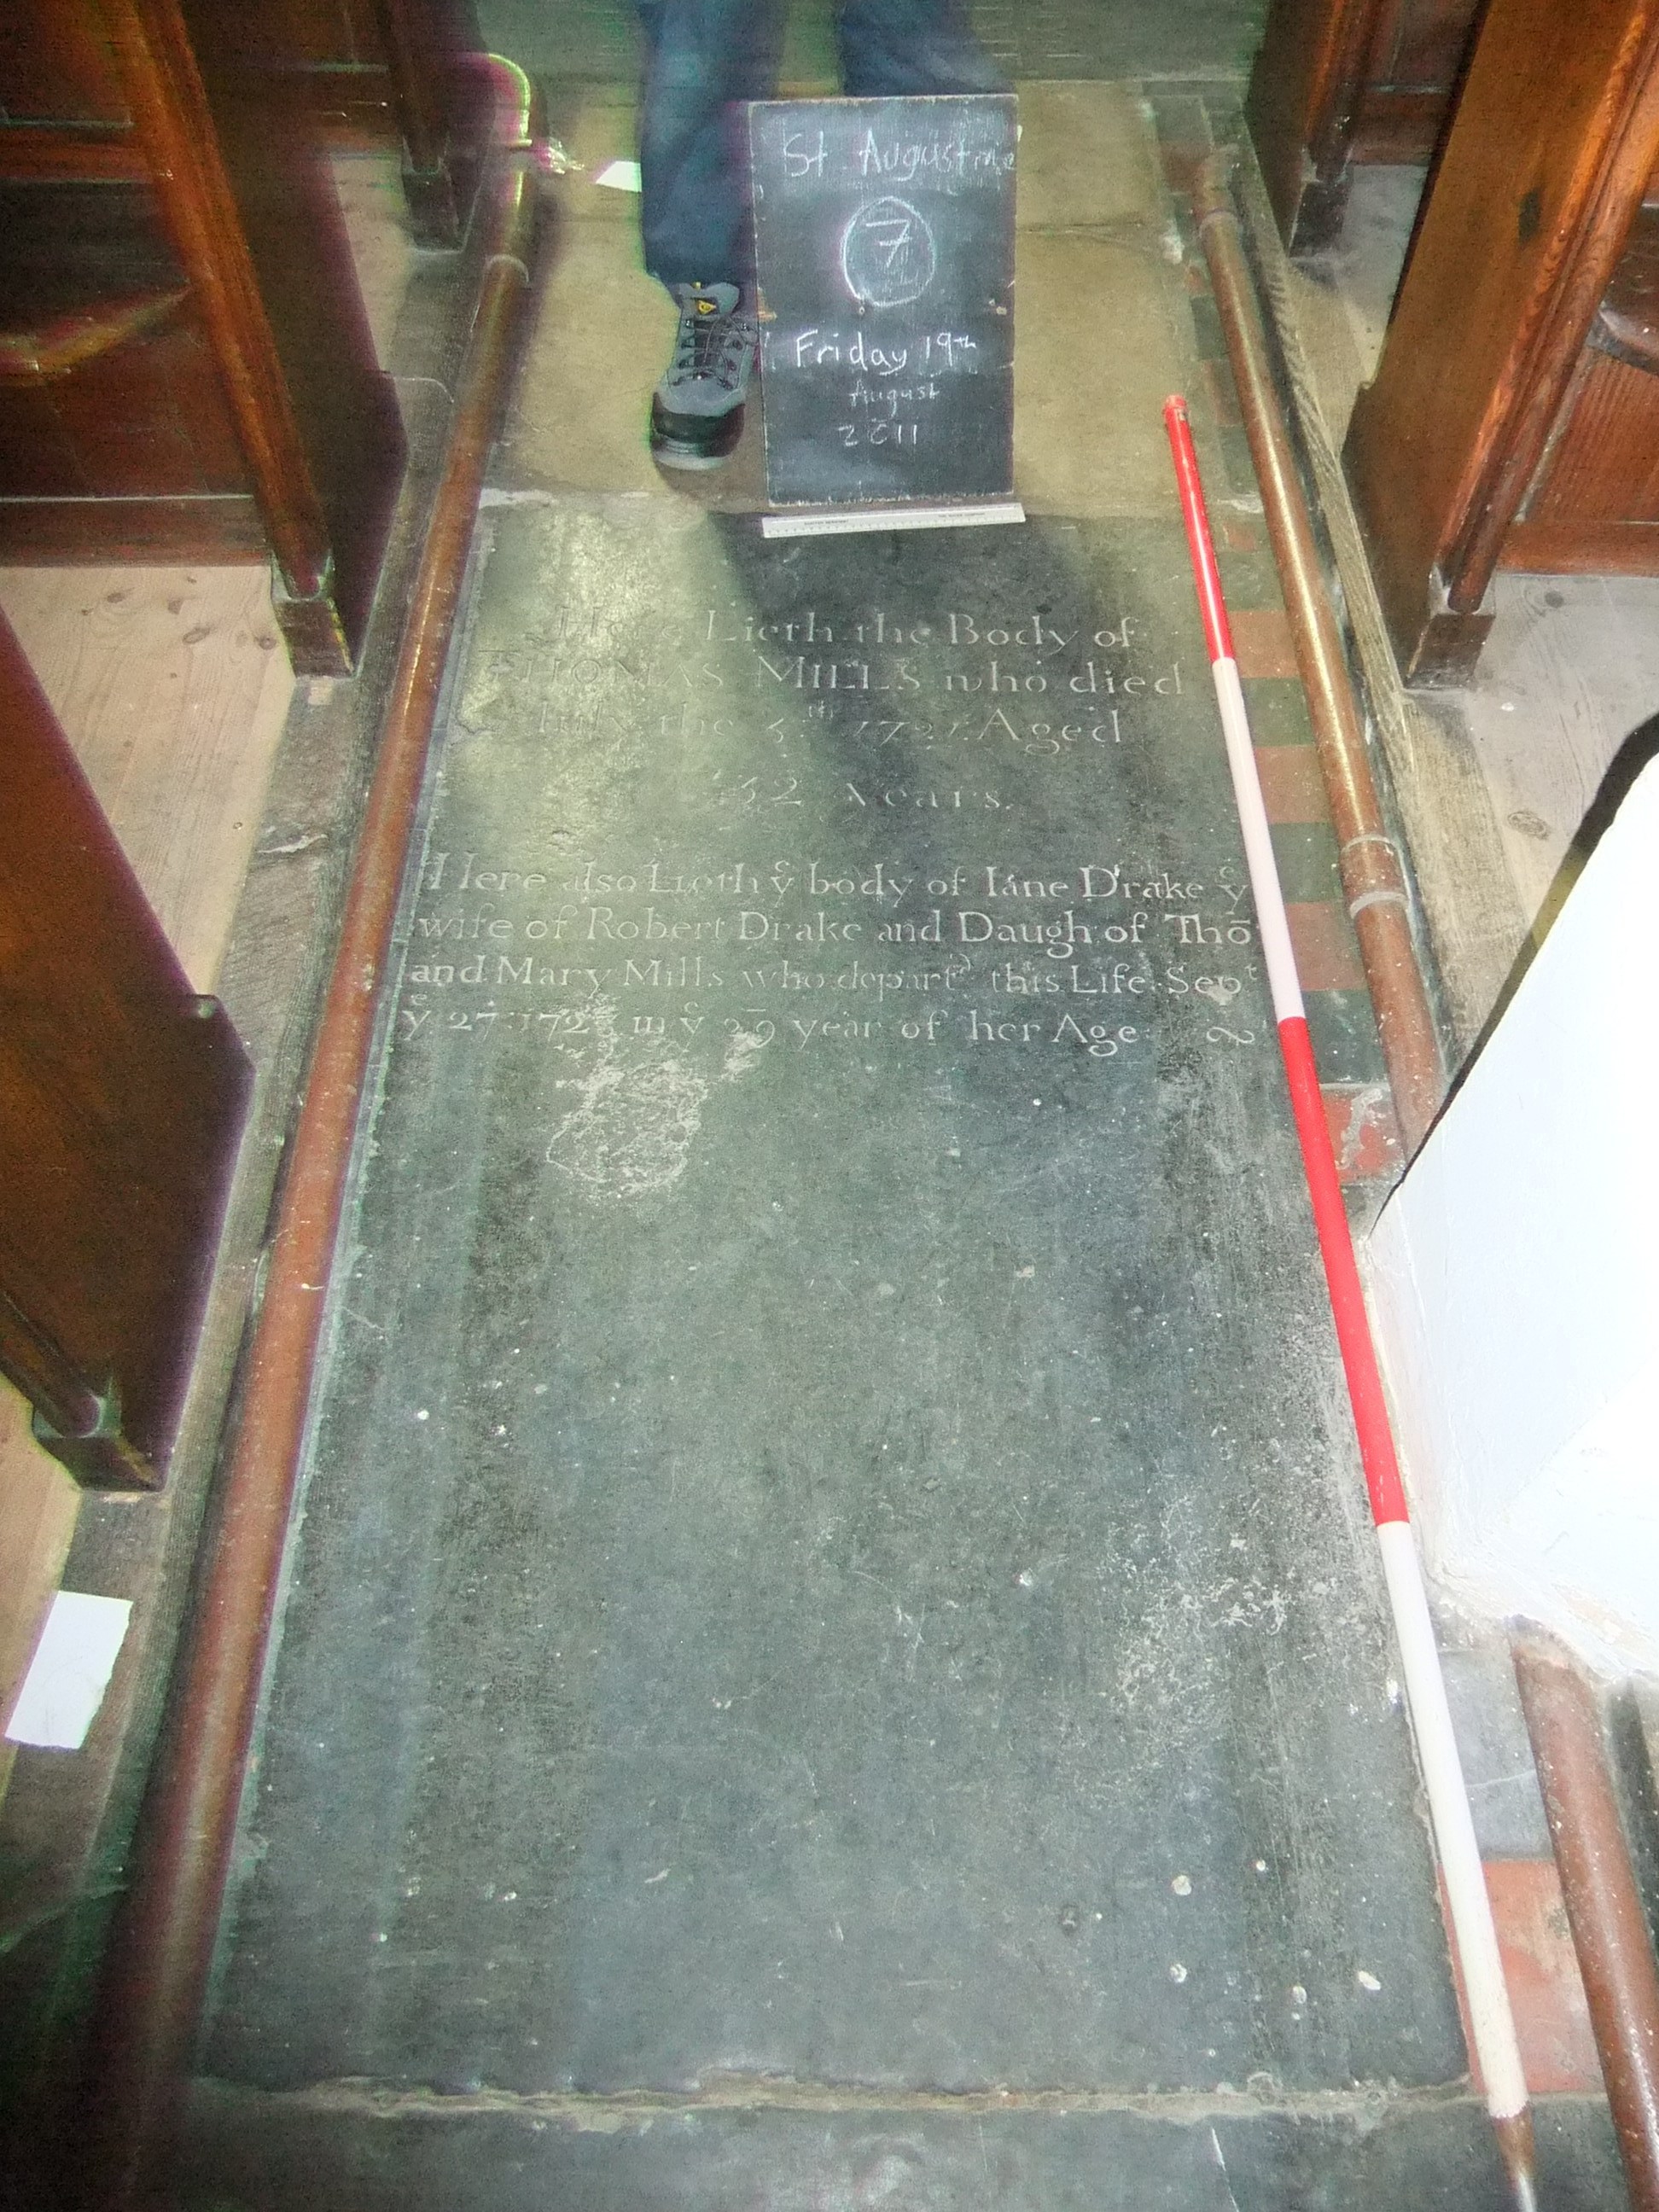 St Augustine
7
Friday 19th
August
2011
Here Lieth the Body of
THOMAS MILLS who died
July the 5th Aged
52 Years.
Here also Lieth yᵉ body of Iane Drake yᵉ
wife of Robert Drake and Daugh of Thō
and Mary Mills who departᵈ this Life Sepᵗ
yᵉ 27 in yᵉ 29 year of her Age